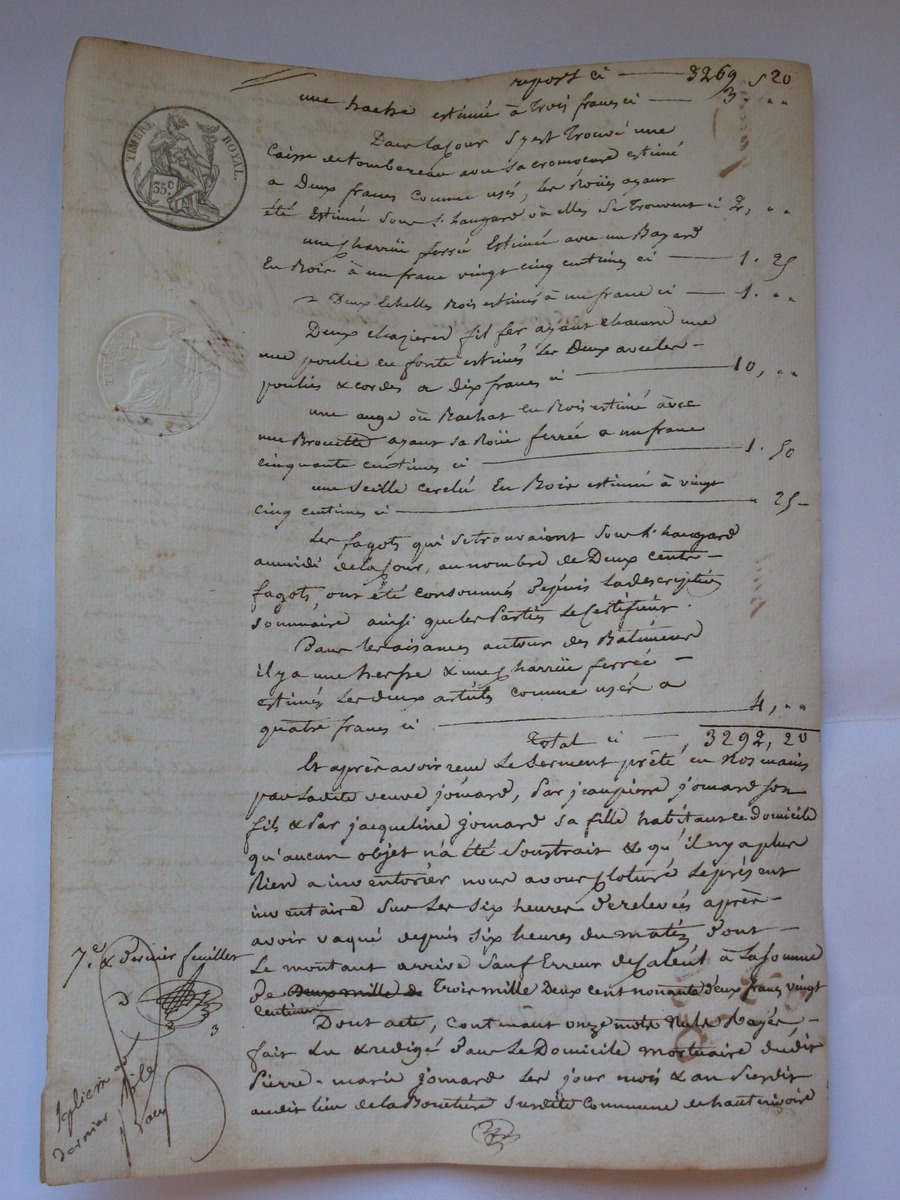 report ci — 3269 , 20
une hache estimée à trois francs ci — 3. "
TIMBRE ROYAL.
35c.
Dans la Cour s'y est trouvé une
Caisse de tombereau avec sa estimé
a Deux francs comme usés, les Roües ayant
été Estimée sous l'haugard où elles se trouvent ci 2, "
une Charrüe ferrée Estimée avec un
En Bois à un franc vingt cinq centimes ci — 1. 25
Deux Echelles Bois estimés à un franc ci — 1. "
Deux fil fer ayant une
une poulie en fonte estimés les Deux avec les
poulies & cordes a Dix francs ci — 10, "
une auge ou Bachat En Bois estimé avec
une Brouette ayant sa Roüe ferrée a un franc
cinquante centimes ci — 1. 50
une seille cerclé En Bois estimé à vingt
cinq centimes ci — " 25
Les fagots qui se trouvaient sous l'haugard
au midi de la Cour, au nombre de Deux cents
fagots, ont été consommés depuis la description
sommaire ainsi que les Parties le Certifient.
Dans les aisances autour des Batiments
il y a une herse & une Charrüe ferrée
estimés les deux articles comme usés a
quatre francs ci — 4, "
Total ci — 3292, 20
Et après avoir reçu le serment prêté en Nos mains
par ladite veuve jomard, Par jean pierre jomard son
fils & Par jacqueline jomard sa fille habitant ce domicile
qu'aucun objet n'a été soustrait & qu'il n'y a plus
Rien a inventorier nous avons Cloturé le présent
inventaire sur les six heures de relevée après
avoir vaqué depuis six heures du matin dont
Le montant arrive sauf Erreur de Calcul à la somme
De Deux mille de Trois mille Deux cent nonante deux francs vingt
centimes
7e. & dernier feuillet
Dont acte, contenant onze mots Nuls Rayés
fait Lu & redigé Dans Le Domicile mortuaire dudit
Pierre-marie jomard les jour mois & an susdit
audit lieu de la susdite Commune de hauterivoire
dernier Rôle